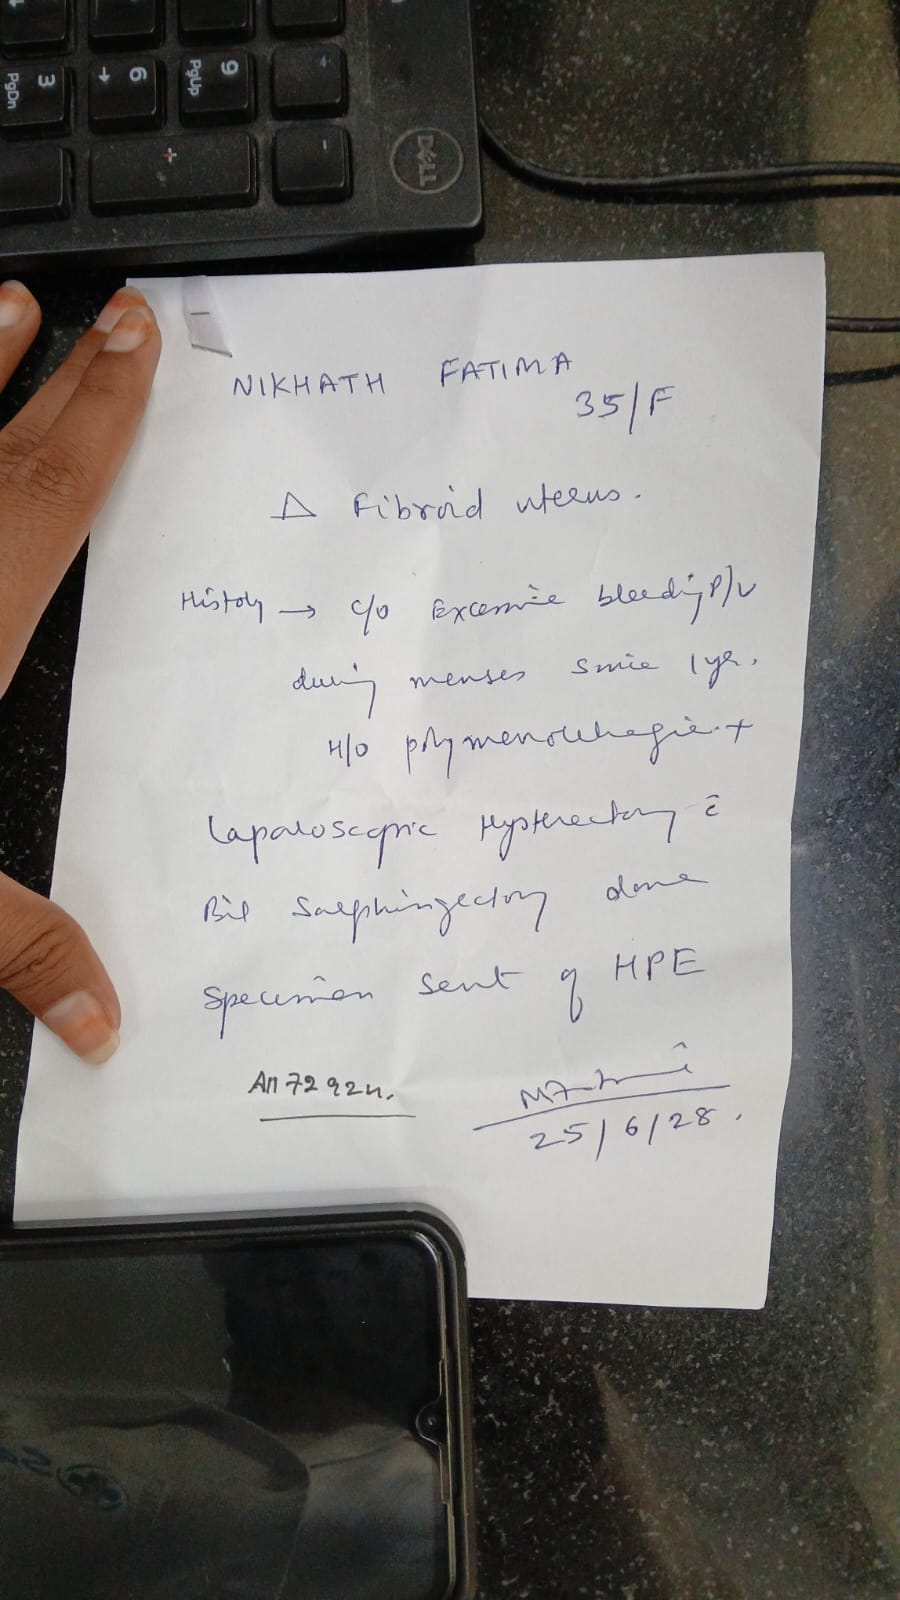 3 PgDn
6
9 PgUp
+
-
DELL
NIKHATH FATIMA
35/F
Δ Fibroid uterus.
History → c/o Excessive bleeding P/v
during menses since 1 yr.
H/o polymenorrhagia +
Laparoscopic Hysterectomy c̄
Bil Salphingectomy done
Specimen sent for HPE
25/6/28.